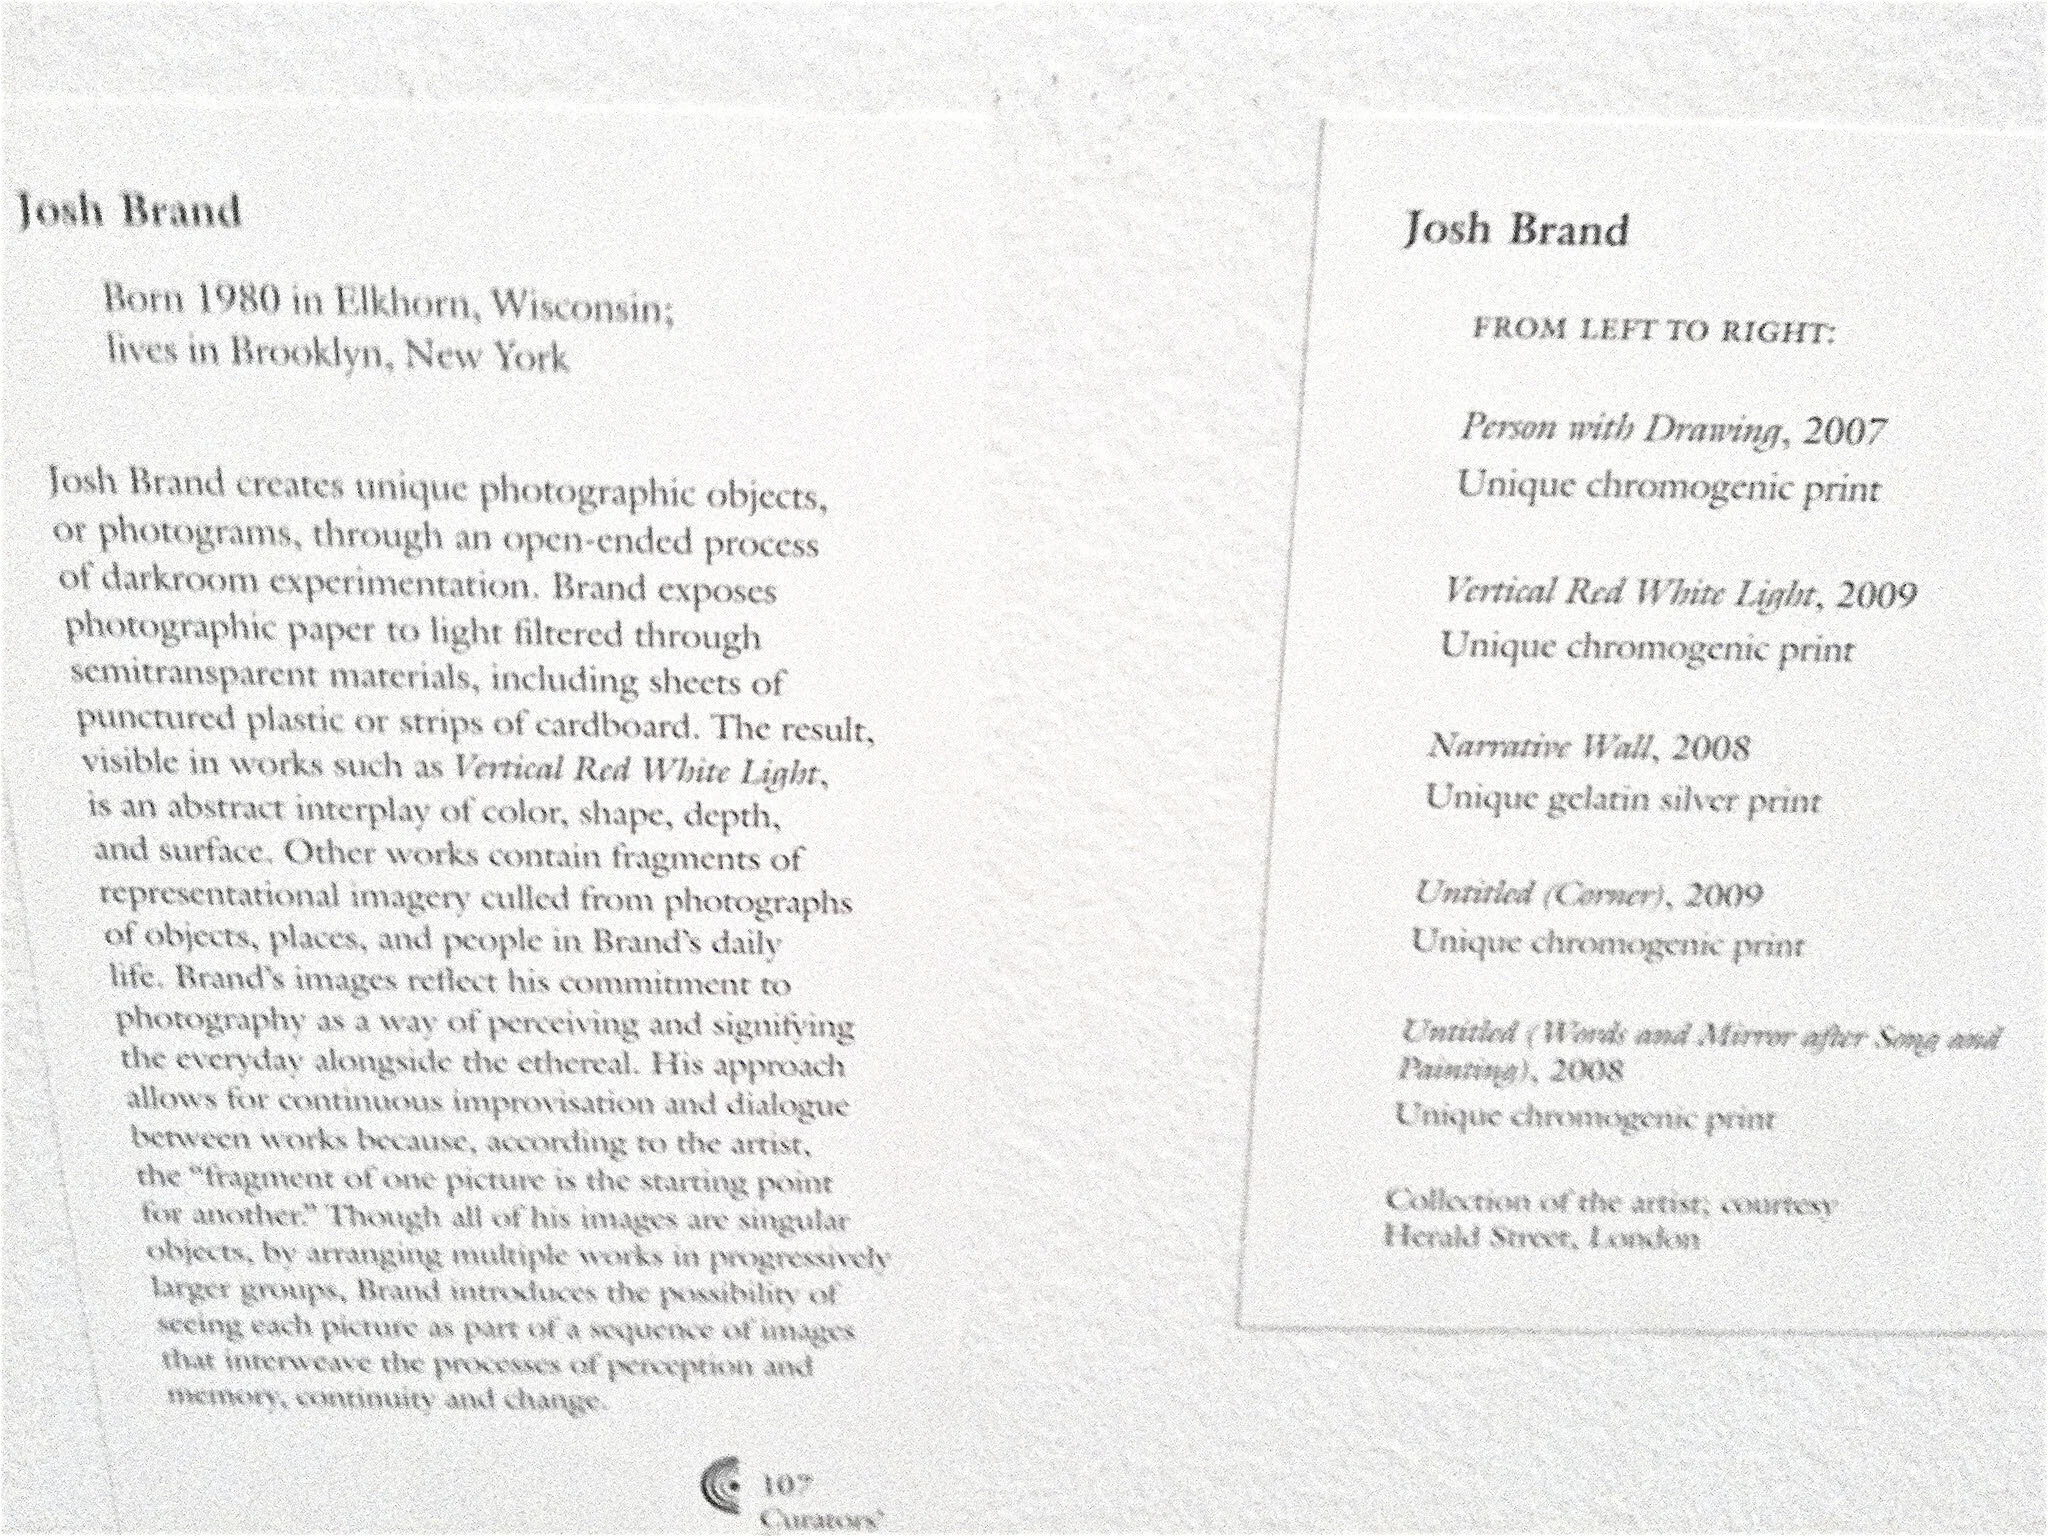 Josh Brand
Born 1980 in Elkhorn, Wisconsin;
lives in Brooklyn, New York
Josh Brand creates unique photographic objects,
or photograms, through an open-ended process
of darkroom experimentation. Brand exposes
photographic paper to light filtered through
semitransparent materials, including sheets of
punctured plastic or strips of cardboard. The result,
visible in works such as Vertical Red White Light,
is an abstract interplay of color, shape, depth,
and surface. Other works contain fragments of
representational imagery culled from photographs
of objects, places, and people in Brand's daily
life. Brand's images reflect his commitment to
photography as a way of perceiving and signifying
the everyday alongside the ethereal. His approach
allows for continuous improvisation and dialogue
between works because, according to the artist,
the "fragment of one picture is the starting point
for another." Though all of his images are singular
objects, by arranging multiple works in progressively
larger groups, Brand introduces the possibility of
seeing each picture as part of a sequence of images
that interweave the processes of perception and
memory, continuity and change.
107
Curators'
Josh Brand
FROM LEFT TO RIGHT:
Person with Drawing, 2007
Unique chromogenic print
Vertical Red White Light, 2009
Unique chromogenic print
Narrative Wall, 2008
Unique gelatin silver print
Untitled (Corner), 2009
Unique chromogenic print
Untitled (Words and Mirror after Song and
Painting), 2008
Unique chromogenic print
Collection of the artist; courtesy
Herald Street, London